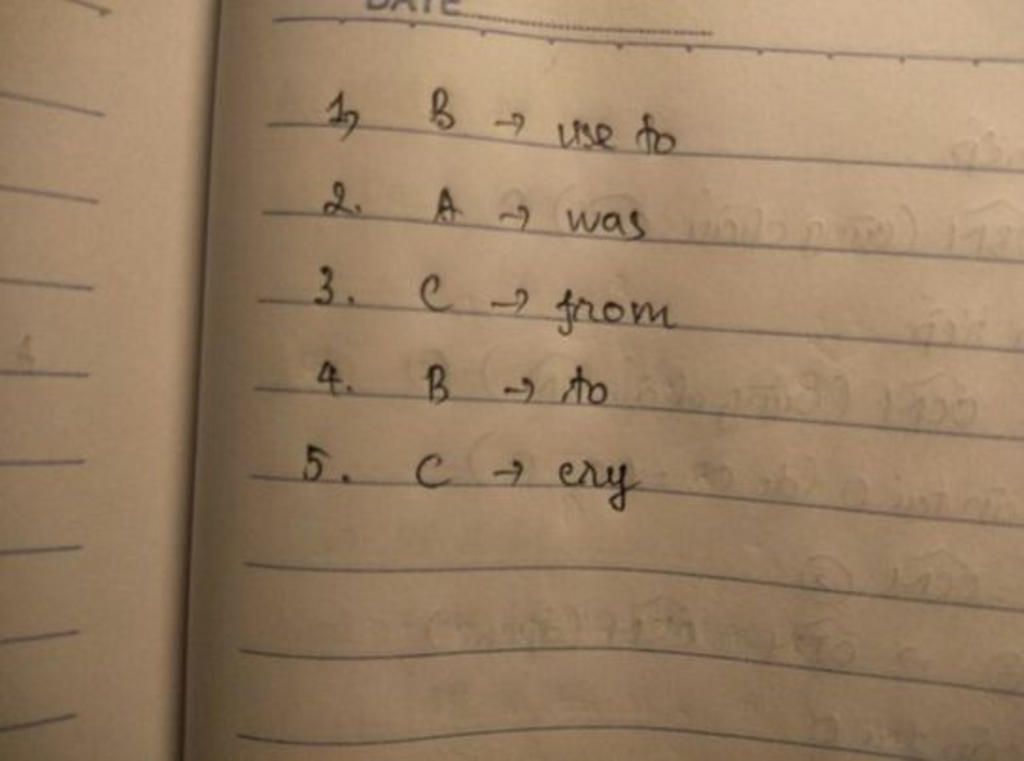 DATE
1, B → use to
2. A → was
3. C → from
4. B → to
5. C → cry